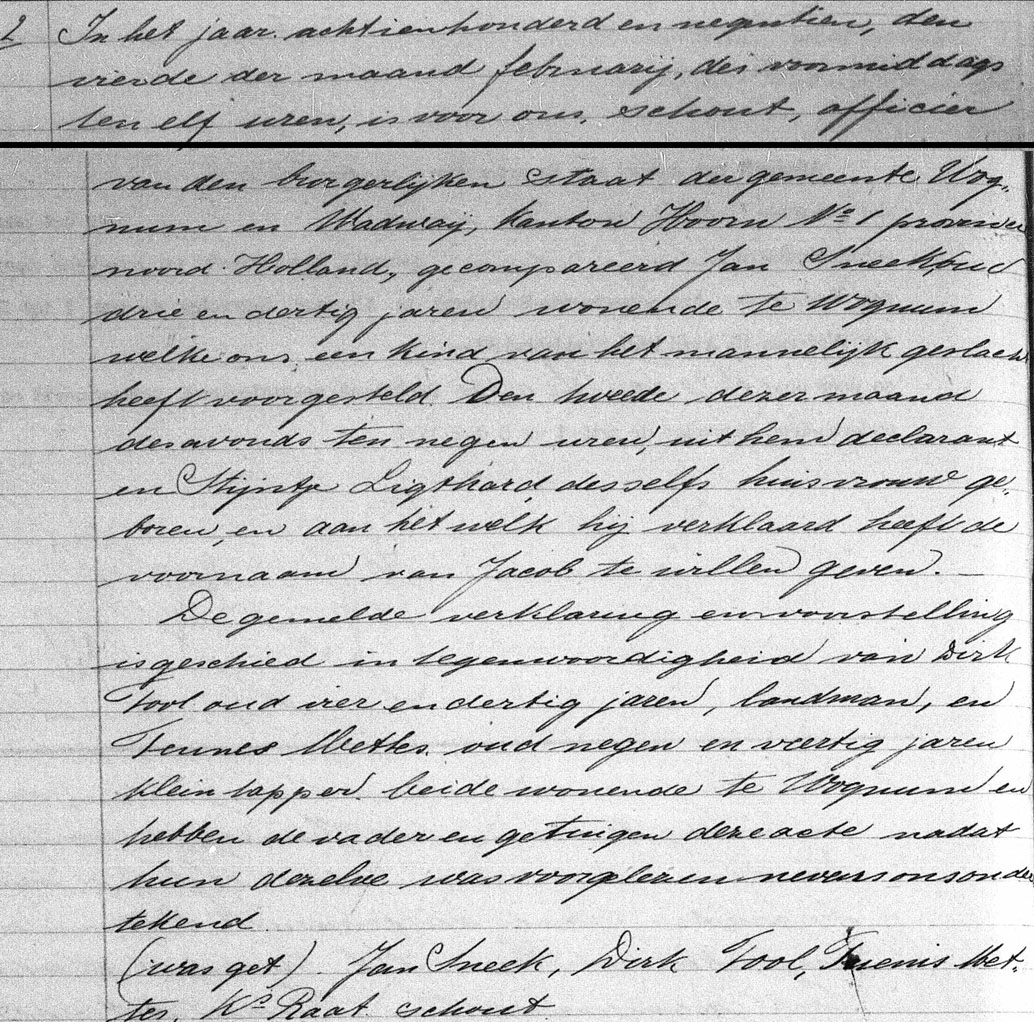 2 In het jaar achtienhonderd en negentien, den
vierde der maand februarij, des voormiddags
ten elf uren, is voor ons, schout, officier
van den burgerlijken staat der gemeente Wog-
num en Wadway, kanton Hoorn No 1 provincie
noord-Holland, gecompareerd Jan Sneek, oud
drie en dertig jaren wonende te Wognum
welke ons een kind van het mannelijk geslacht
heeft voorgesteld. Den tweede dezer maand
des avonds ten negen uren, uit hem declarant
en Stijntje Ligthard desselfs huisvrouw ge-
boren, en aan het welk hij verklaard heeft de
voornaam van Jacob te willen geven. —
De gemelde verklaring en voorstelling
is geschied in tegenwoordigheid van Dirk
Tool oud vier en dertig jaren, landman, en
Teunes Mettes oud negen en veertig jaren
klein tapper beide wonende te Wognum en
hebben de vader en getuigen deze acte nadat
hun dezelve was voorgelezen nevens ons onder
tekend
(was get) Jan Sneek, Dirk Tool, Tuenis Met-
tes, Ks Raat schout